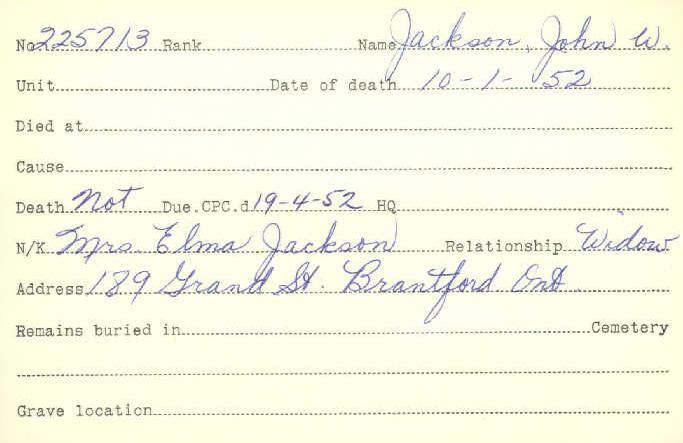 No 225713 Rank Name Jackson, John W.
Unit Date of death 10-1-52
Died at
Cause
Death Not Due. CPC.d 19-4-52 HQ
N/K Mrs. Elma Jackson Relationship Widow
Address 189 Grand St. Brantford Ont.
Remains buried in Cemetery
Grave location